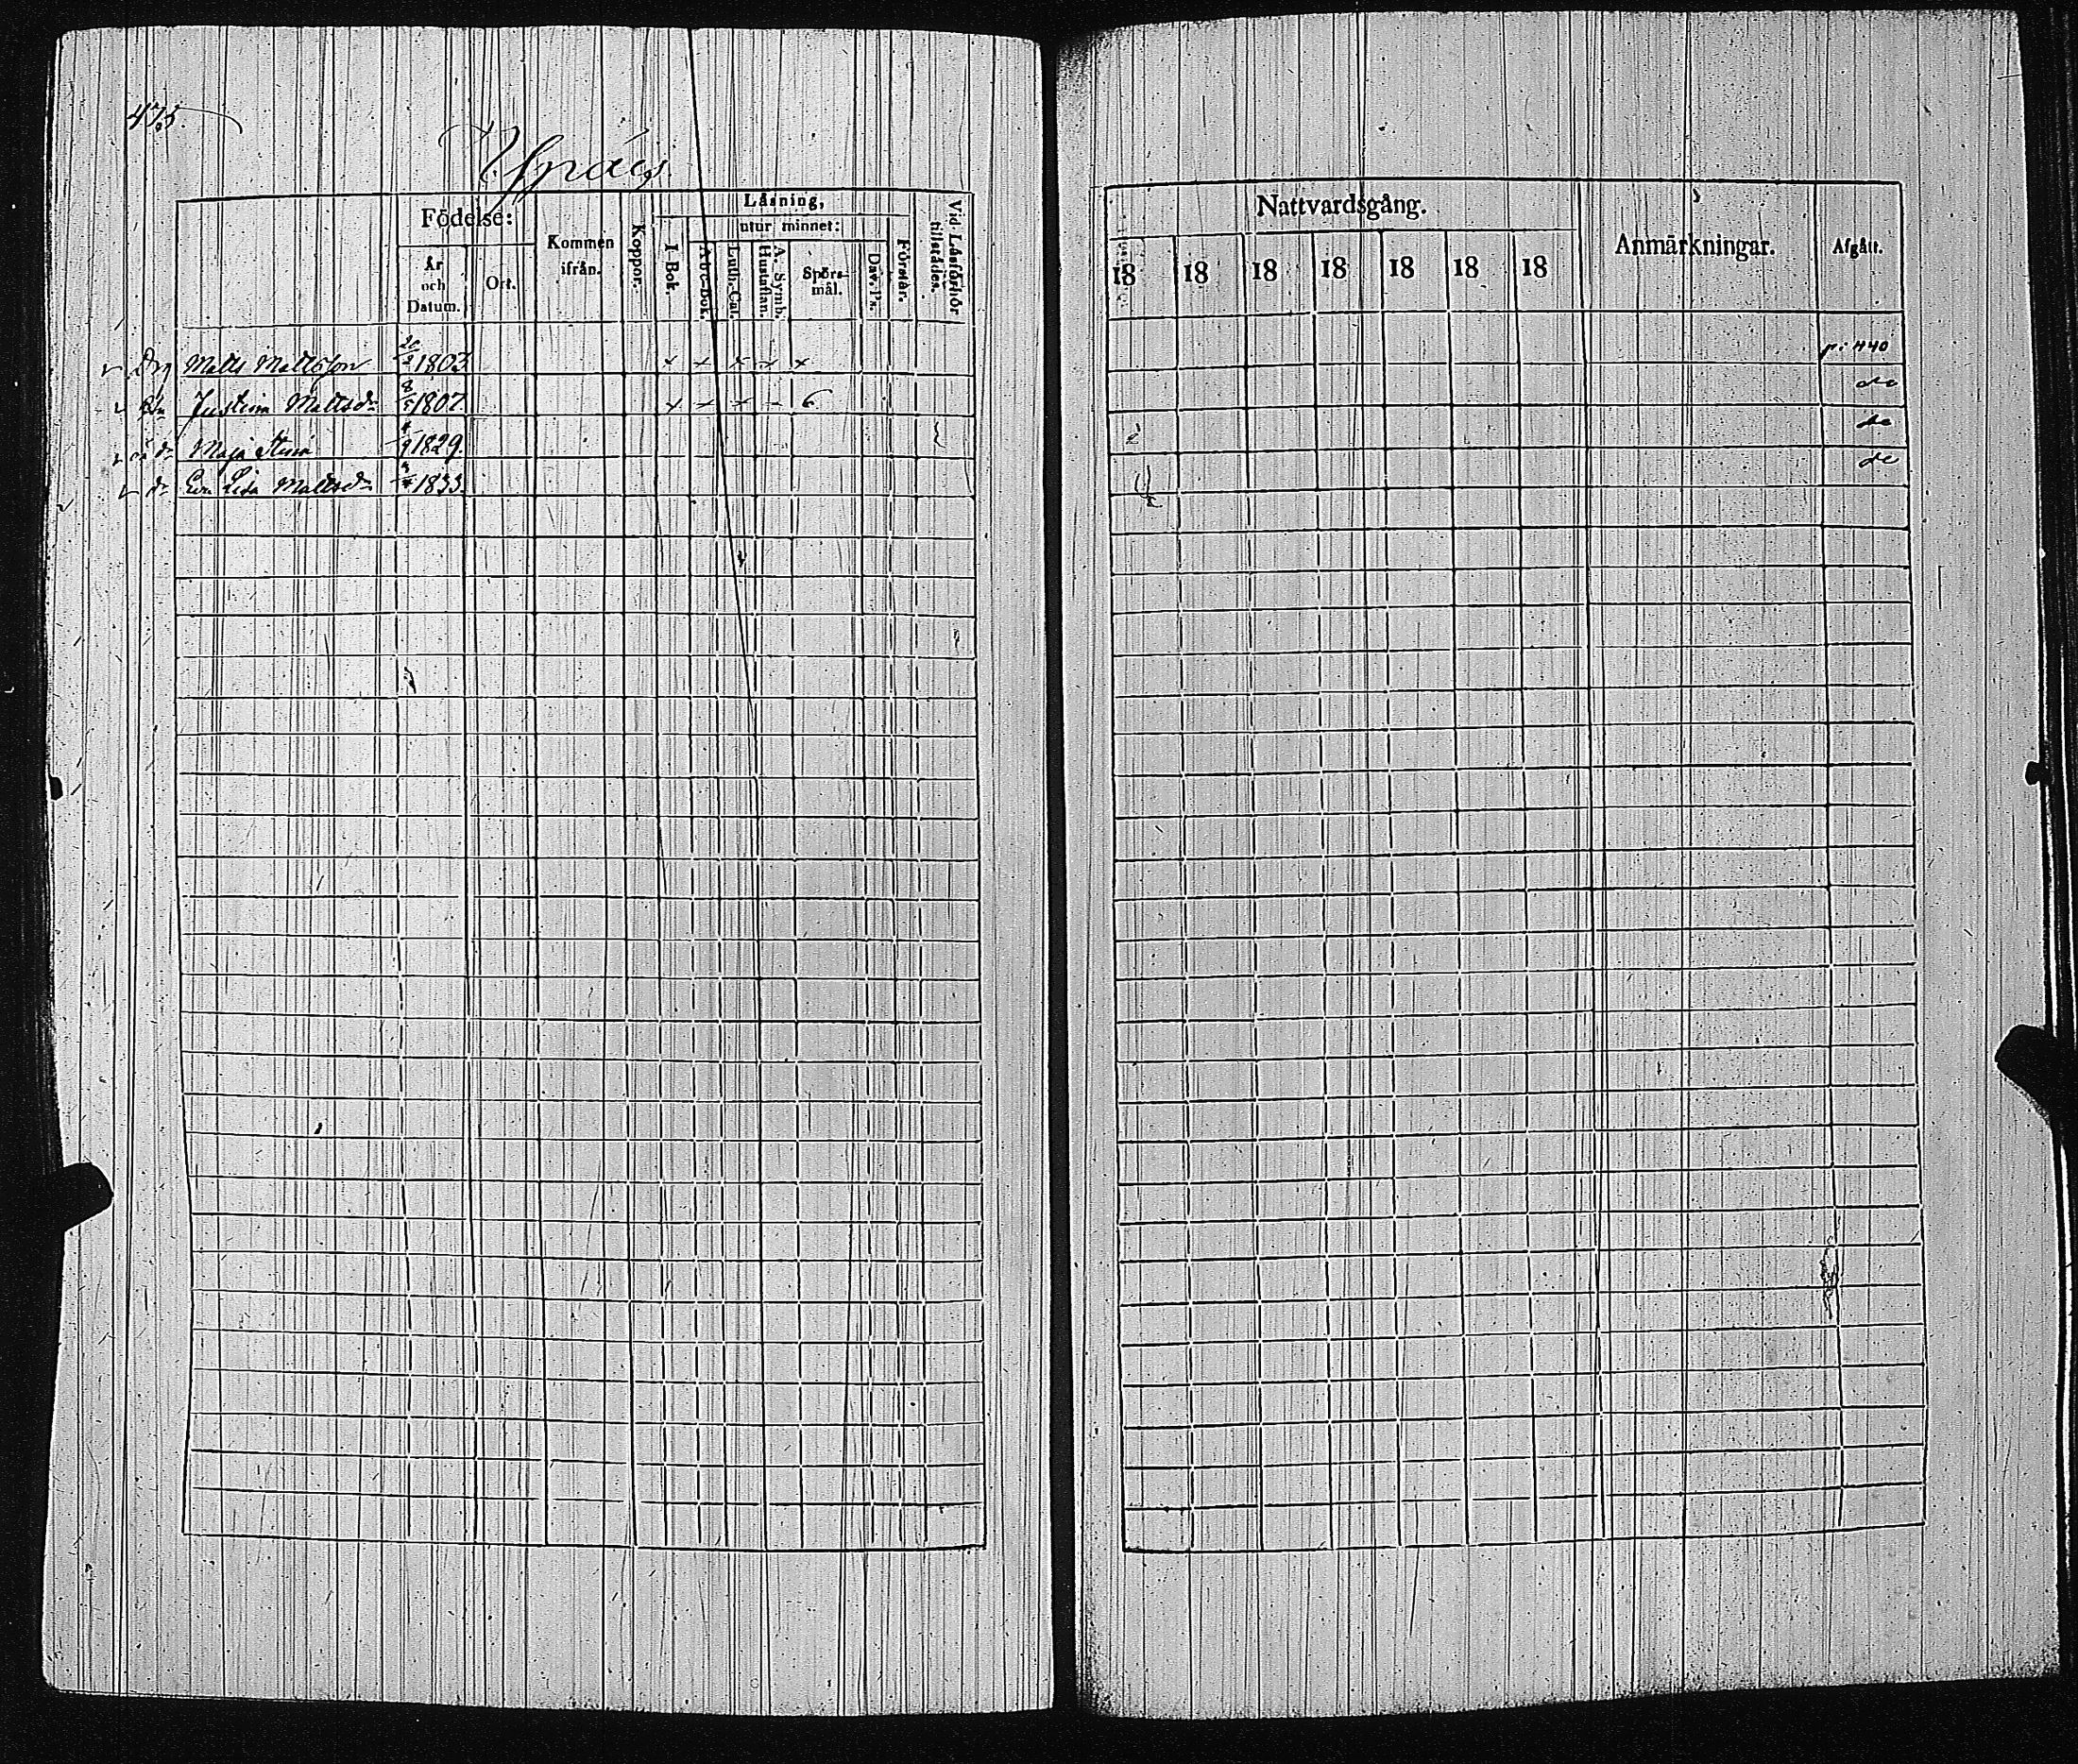 475
Födelse:
År och Datum.
Ort.
Kommen ifrån.
Koppor.
Läsning,
utur minnet:
I Bok.
Abc-Bok.
Luth. Cat.
A. Symb. Hustaflan.
Spörs-mål.
Dav. Ps.
Förstår.
Vid Läsförhör tillstädes.
Drg Matts Mattsson 1803. + + + + +
Hu Justina Mattsdr 8/5 1807 + + + - 6
Maja Stina 1829.
dr Eva Lisa Mattsdr 1833.
Nattvardsgång.
18 18 18 18 18 18 18
Anmärkningar.
Afgått.
p: 440
do
do
do